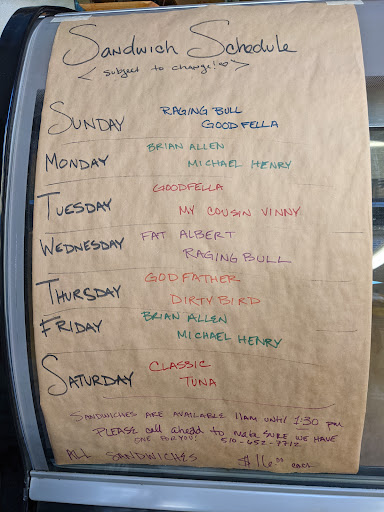 SANDWICH SCHEDULE
< subject to change! >
SUNDAY RAGING BULL
GOODFELLA
MONDAY BRIAN ALLEN
MICHAEL HENRY
TUESDAY GOODFELLA
MY COUSIN VINNY
WEDNESDAY FAT ALBERT
RAGING BULL
THURSDAY GODFATHER
DIRTY BIRD
FRIDAY BRIAN ALLEN
MICHAEL HENRY
SATURDAY CLASSIC
TUNA
SANDWICHES ARE AVAILABLE 11am until 1:30 pm
PLEASE call ahead to make SURE WE HAVE
ONE FOR YOU! 510-652-7712
ALL SANDWICHES $16.00 each